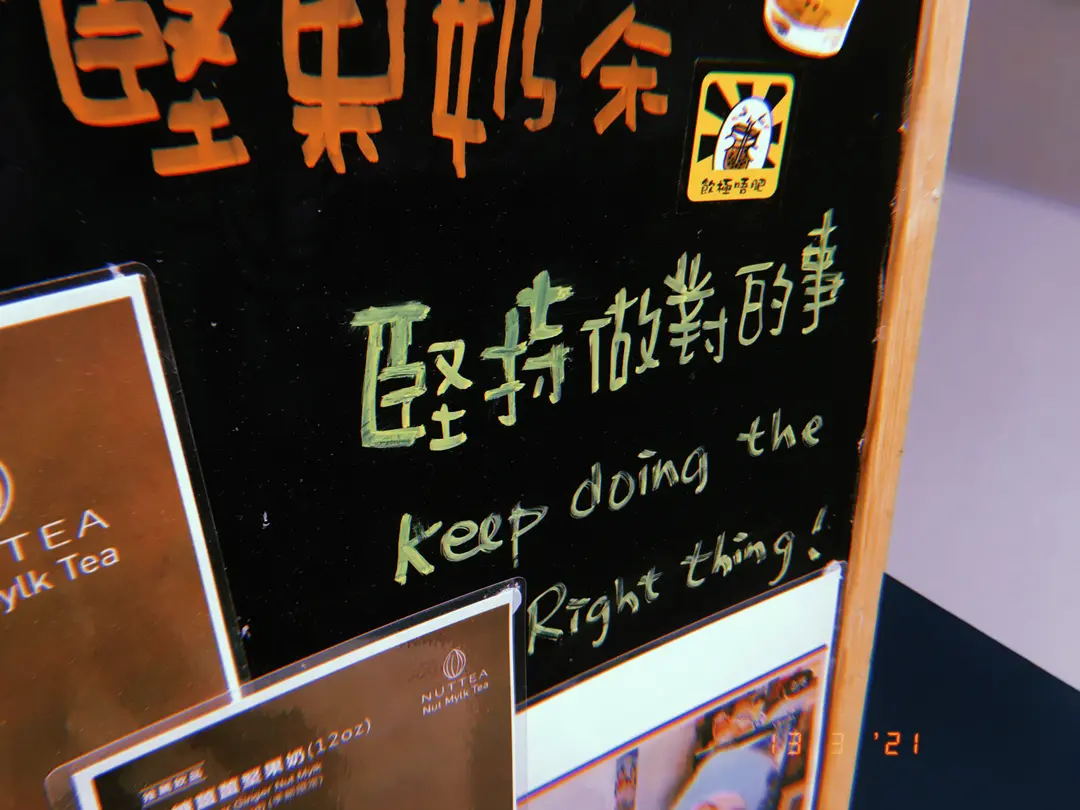 堅果奶茶
飲極唔肥
堅持做對的事
keep doing the
Right thing!
TTEA
Mylk Tea
NUTTEA
Nut Mylk Tea
堅果奶(12oz)
Ginger Nut Mylk
13 3 '21